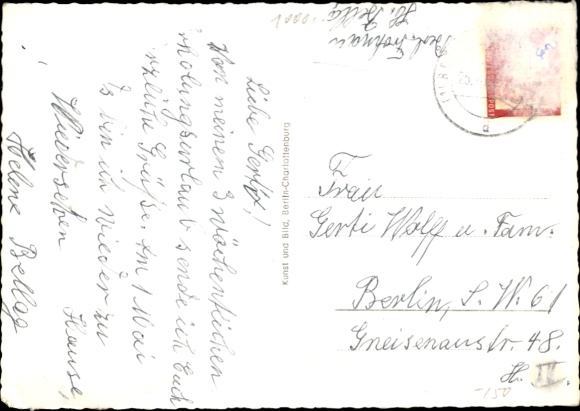 Liebe Gertf!
Von meinen 3 wöchentlichen
Erholungsurlaub sende ich Euch
herzliche Grüße. Am 1 Mai
bin ich wieder zu
Hause,
Wiedersehen
Helene Bellag
H. Bellag
Berl. Frohnau
Kunst und Bild, Berlin-Charlottenburg
Frau
Gerti Wolff u. Fam.
Berlin, S. W. 61
Gneisenaustr. 48.
H. IV.
-150